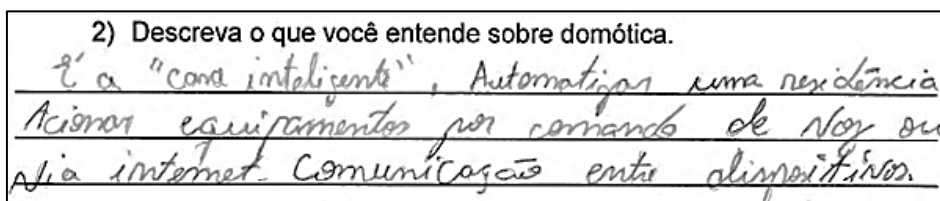 2) Descreva o que você entende sobre domótica.
É a "casa inteligente", Automatizar uma residência
Acionar equipamentos por comando de voz ou
via internet. Comunicação entre dispositivos.